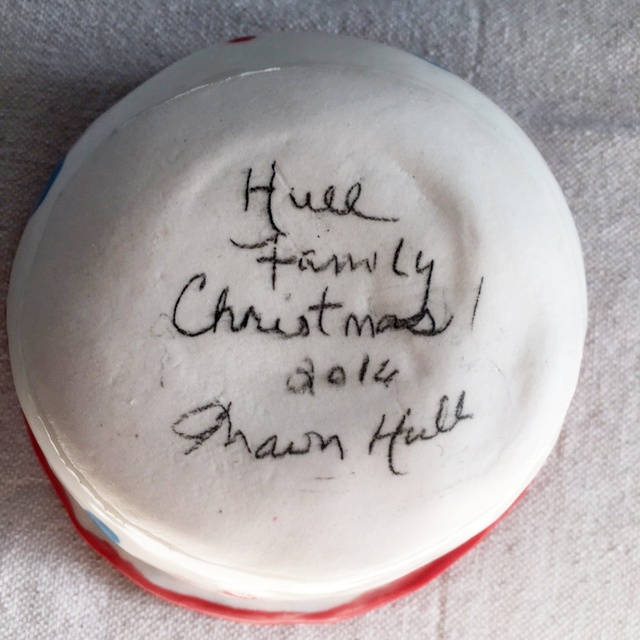 Hull
Family
Christmas!
2014
Shawn Hull